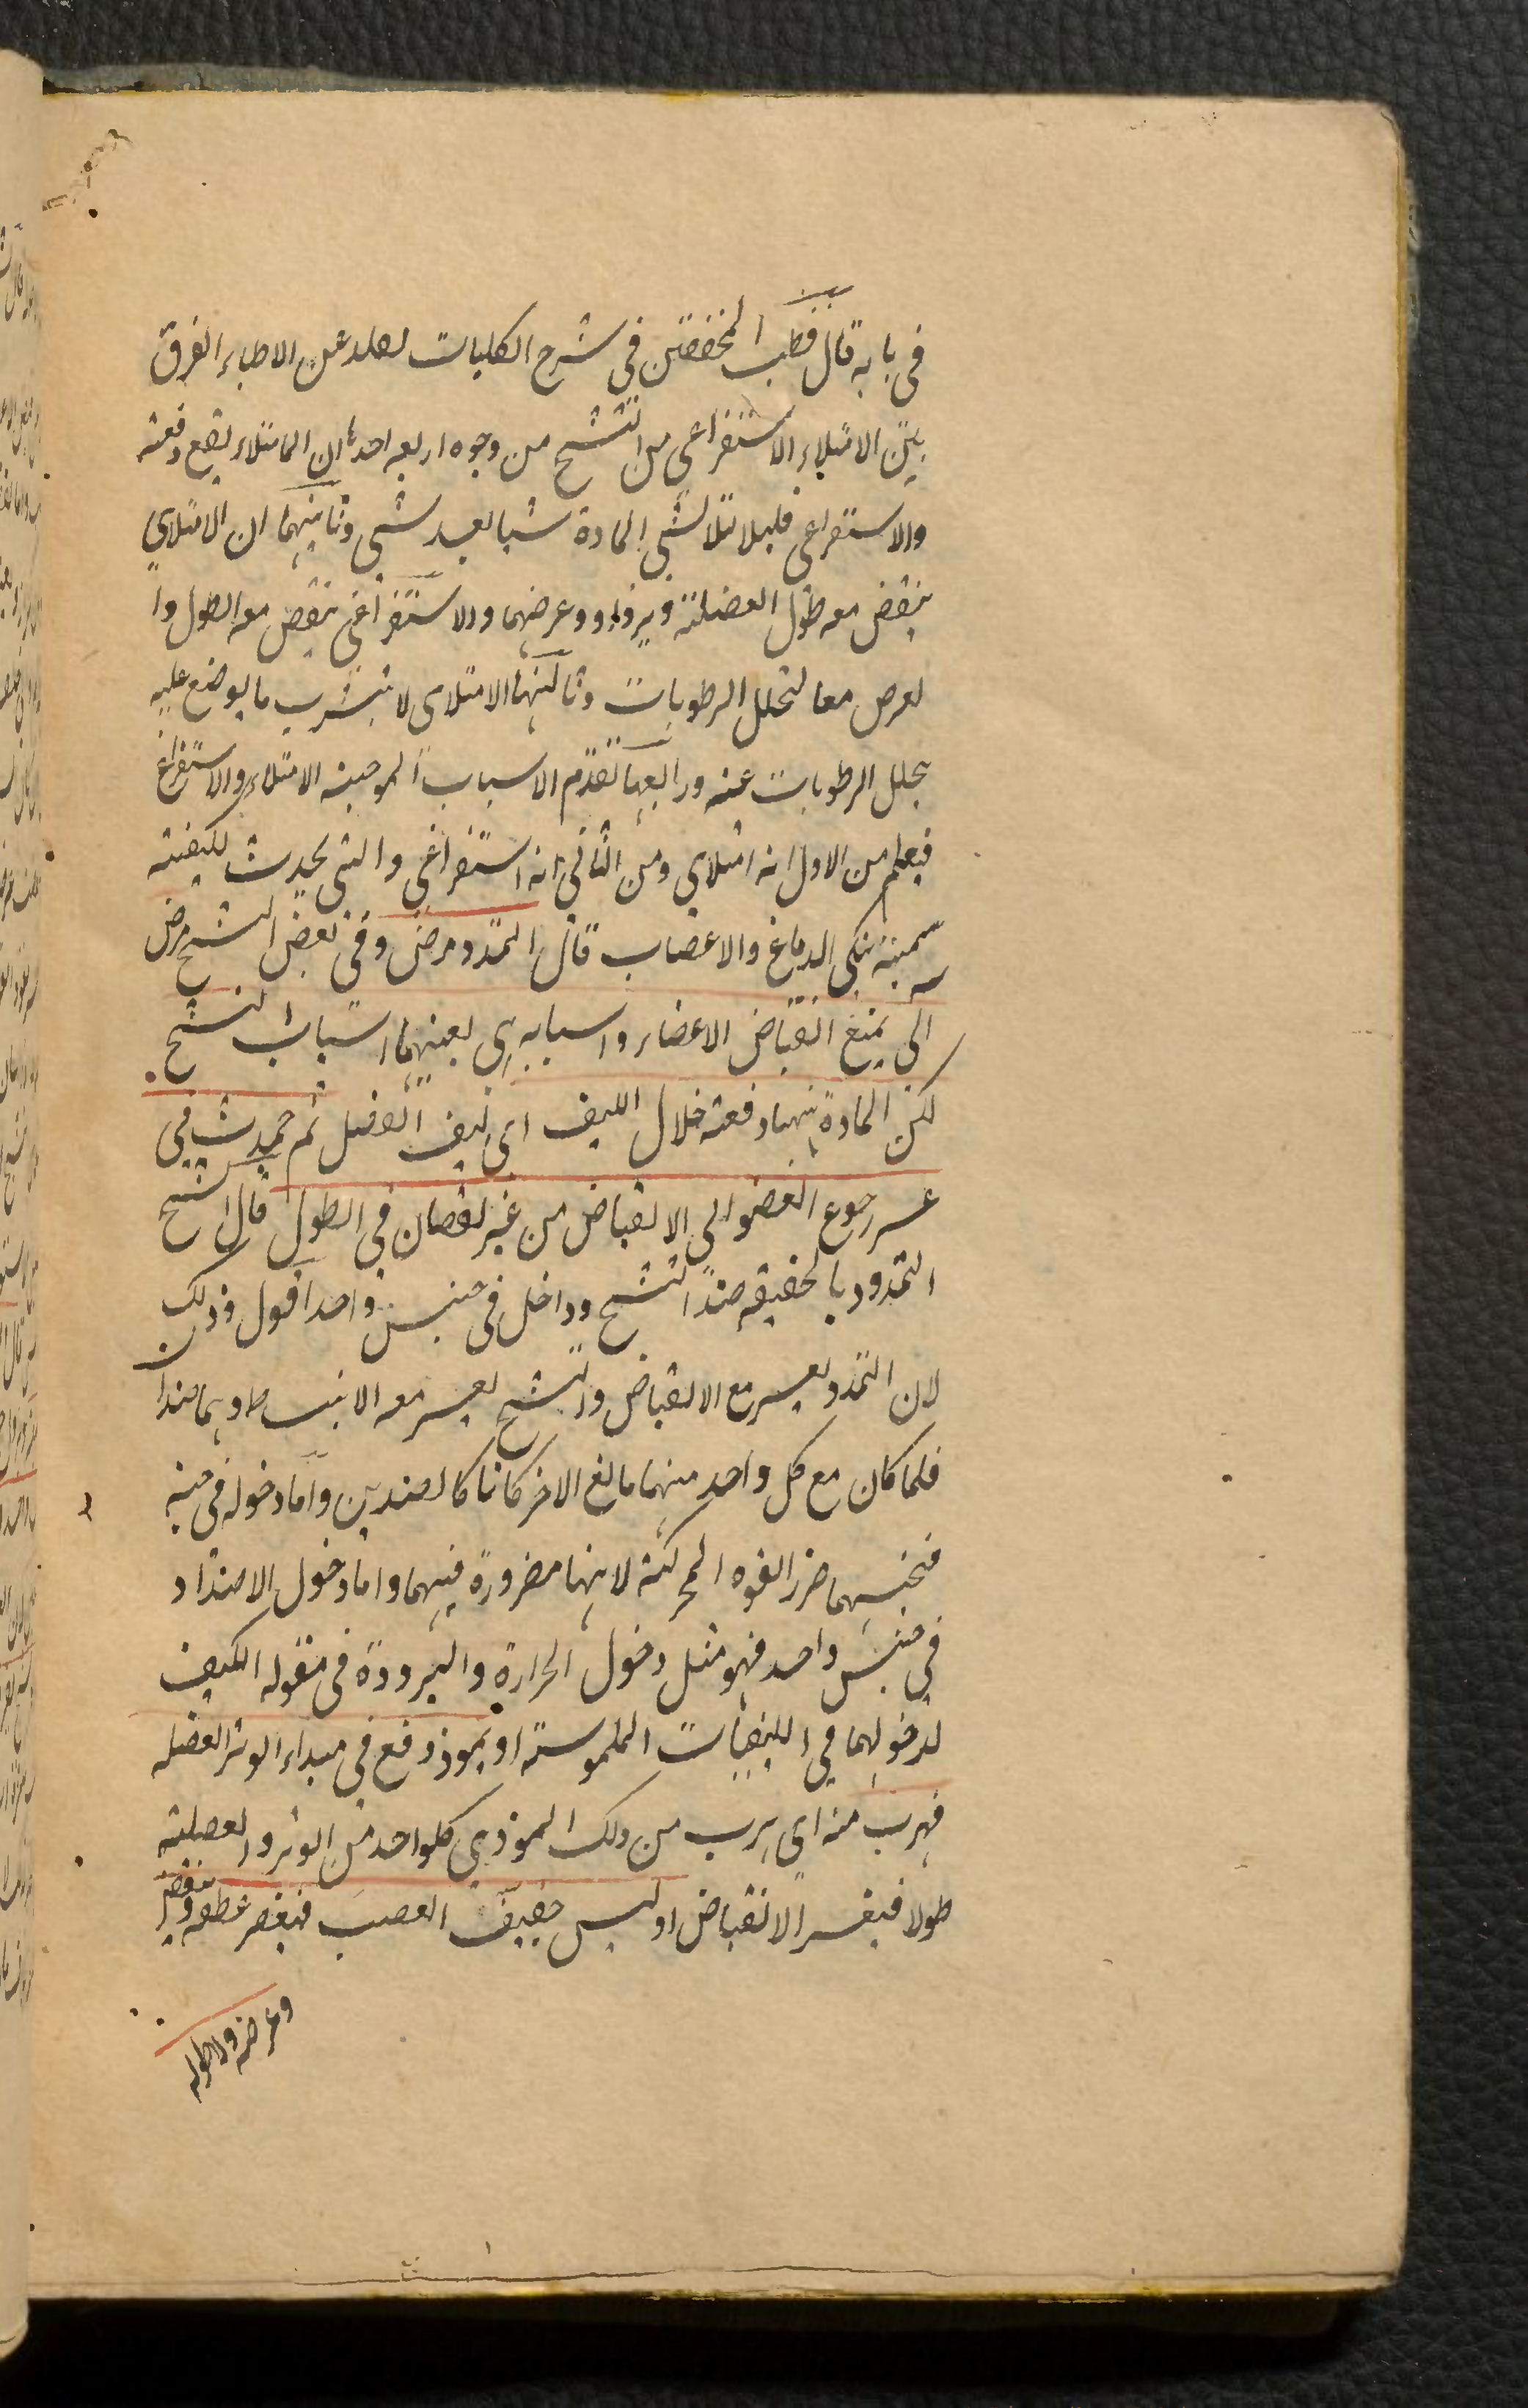 في بابه قال قطب المحققين في شرح الكليات لعله عن الاطباء الفرق
بين الامتلاء الاستفراغي من التشنج من وجوه اربعه احدها ان الامتلاء يقع دفعته
والاستفراغي قليلا لتلاشي المادة شيا بعد شي وثانيهما ان الامتلاي
ينقض معه طول العضلته ويزداد وعرضهما والاستفراغي ينقص معه الطول وا
لعرض معا لتحلل الرطوبات وثالثها الامتلاي لا يتشرب ما يوضع عليه
تحلل الرطوبات عنه ورابعها تقدم الاسباب الموجبته الامتلاء والاستفراغ
فيعلم من الاول انه امتلاي ومن الثاني انه استفراغي والتي يحدث لكيفيته
سميته تنكي الدماغ والاعصاب قال التمدد مرض وفي بعض النسخ مرض
الي يمنع انقباض الاعضاء واسبابه اي بعينهما اسباب التشنج
لكن المادة ينهها دفعته خلال الليف اي ليف العضل ثم حميدث في
عسر رجوع العضو الي الانقباض من غير نقصان في الطول قال الشيخ
التمدد بالحقيقه ضد التشنج وداخل في جنس واحد اقول وذلك
لان التمدد يعسر مع الانقباض والتشنج يعسر معه الانبساط وهما ضدان
فلما كان مع كل واحد منهما مالغ الاخر كانا كالضدين واما دخوله في جنبه
فجنسهما ضرر القوه المحركته لانها مضرورة فيهما واما دخول الاضداد
في جنس واحد فهو مثل دخول الحرارة والبرودة في مقوله الكيف
لدخولهما في الكيفيات الملموسته او بموذ وقع في مبداء الوتر العضله
فهرب منه اي هرب من ذلك الموذي كلواحد من الوتر والعضلته
طولا فيعسر الانقباض او ليبس خفيف العصب فنقص عطفه وينقص
وعرضه ولا طوله